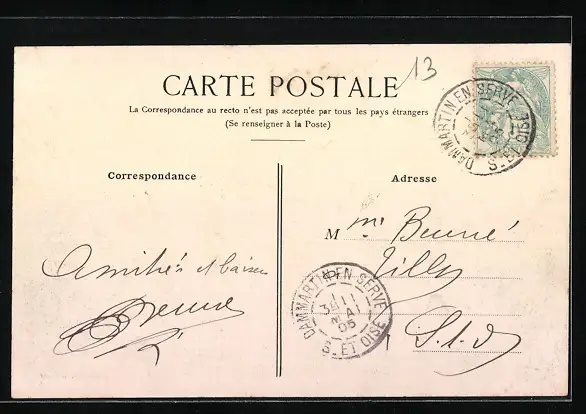 13
CARTE POSTALE
La Correspondance au recto n'est pas acceptée par tous les pays étrangers
(Se renseigner à la Poste)
Correspondance
Adresse
DAMMARTIN EN SERVE
S. ET OISE
M me
Tilly
S. et O.
Amitiés et baisers
DAMMARTIN EN SERVE
11
MAI
05
S. ET OISE